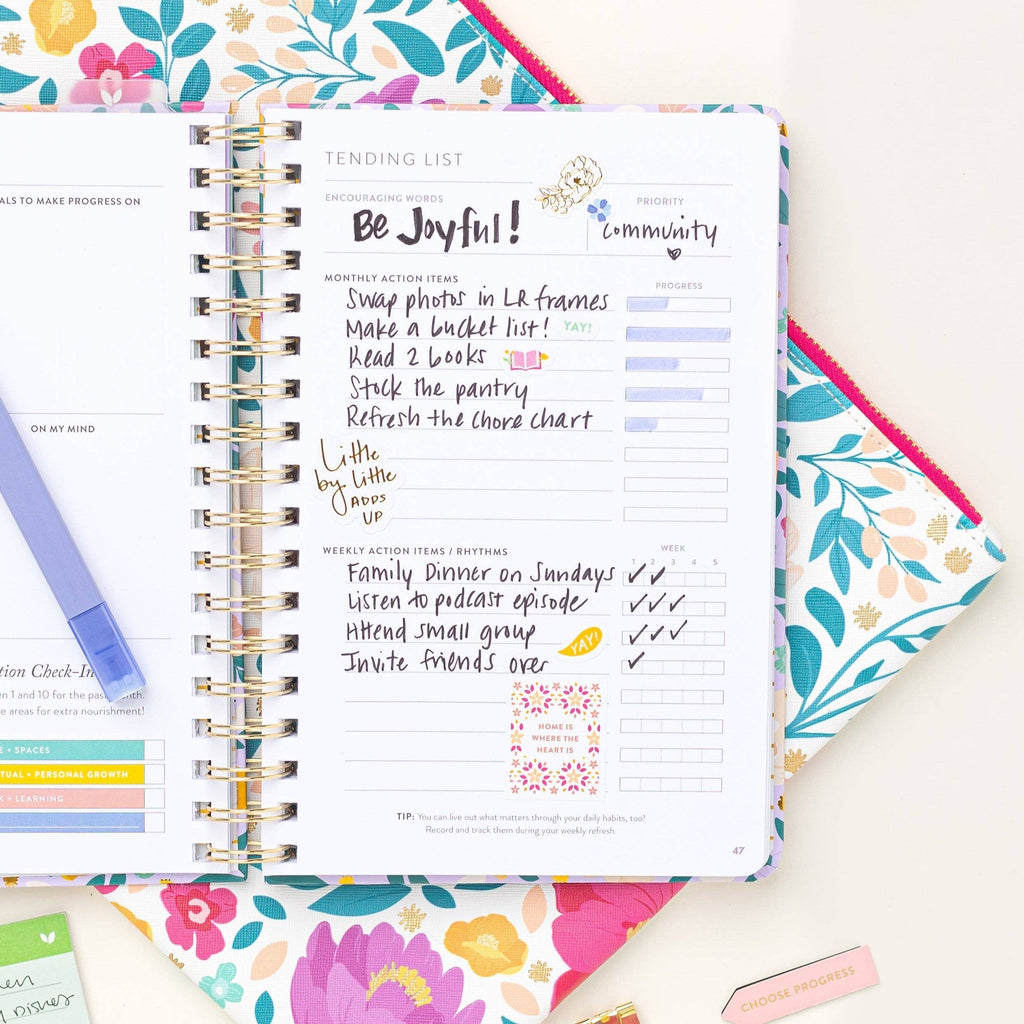 ALS TO MAKE PROGRESS ON
ON MY MIND
tion Check-In
en 1 and 10 for the past month.
e areas for extra nourishment!
E + SPACES
TUAL + PERSONAL GROWTH
K + LEARNING
TENDING LIST
ENCOURAGING WORDS
Be Joyful!
PRIORITY
community
MONTHLY ACTION ITEMS
PROGRESS
Swap photos in LR frames
Make a bucket list! YAY!
Read 2 books
Stock the pantry
Refresh the chore chart
Little
by Little
ADDS
UP
WEEKLY ACTION ITEMS / RHYTHMS
WEEK
1 2 3 4 5
Family Dinner on Sundays
Listen to podcast episode
Attend small group
YAY!
Invite friends over
HOME IS
WHERE THE
HEART IS
TIP: You can live out what matters through your daily habits, too!
Record and track them during your weekly refresh.
47
DISHES
CHOOSE PROGRESS